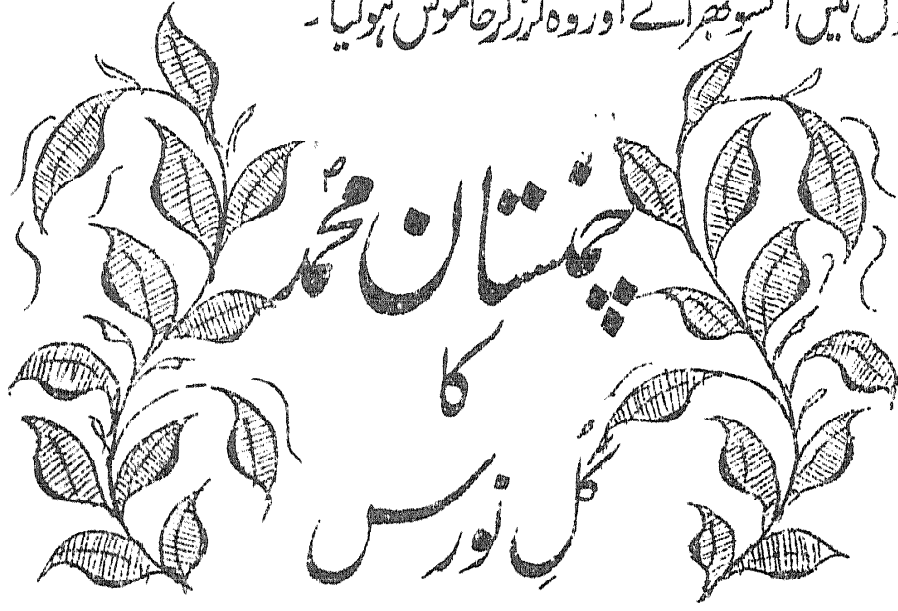 میں آنسو بھر آئے اور وہ لرز کر خاموش ہوگیا ۔
چمنستان محمدؐ
کا
گلِ نورس